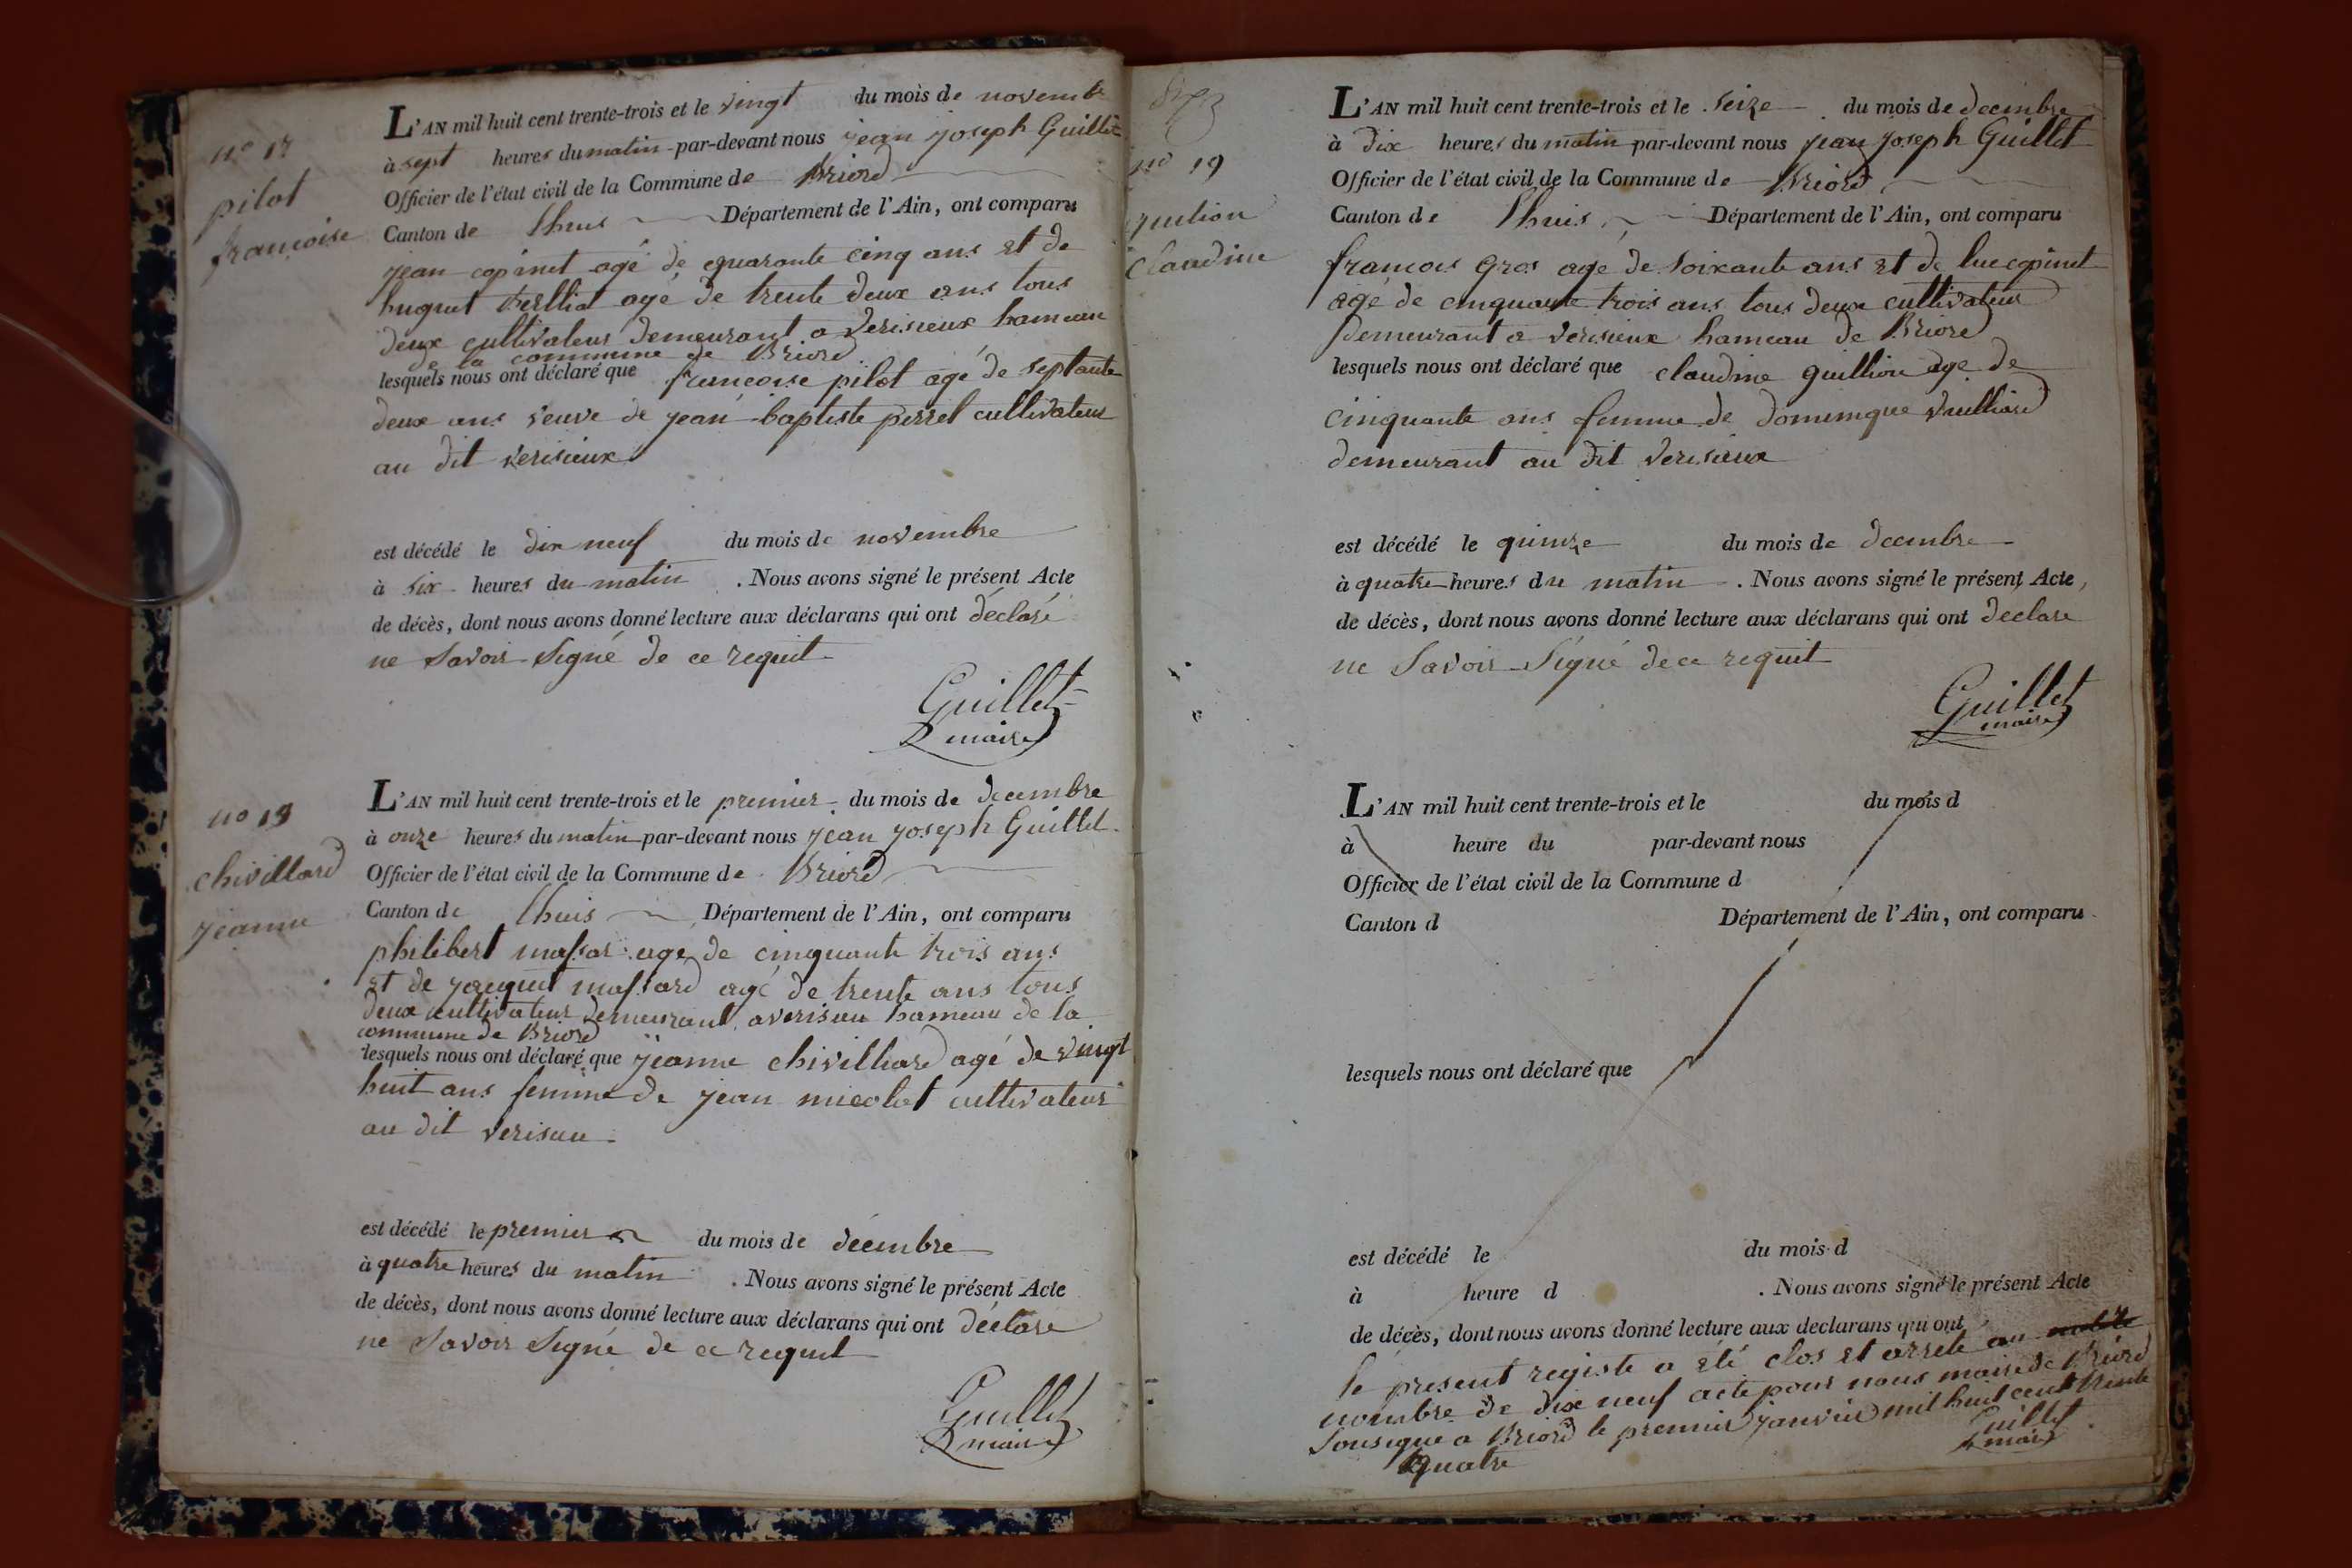 n° 17
pilot
francoise
L'AN mil huit cent trente-trois et le vingt du mois de novembre
à sept heures du matin par-devant nous jean joseph Guillet
Officier de l'état civil de la Commune de Briord
Canton de lhuis Département de l'Ain, ont comparu
jean copinet agé de quarante cinq ans et de
huguet agé de trente deux ans tous
deux cultivateur demeurant a verisieux hameau
de la commune de Briord
lesquels nous ont déclaré que francoise pilot agé de septante
deux ans veuve de jean baptiste perret cultivateur
au dit verisieux
est décédé le dix neuf du mois de novembre
à six heures du matin . Nous avons signé le présent Acte
de décès, dont nous avons donné lecture aux déclarans qui ont déclaré
ne savoir signé de ce requit
Guillet
maire
n° 18
chivillard
jeanne
L'AN mil huit cent trente-trois et le premier du mois de decembre
à onze heures du matin par-devant nous jean joseph Guillet
Officier de l'état civil de la Commune de Briord
Canton de lhuis Département de l'Ain, ont comparu
philibert massar agé de cinquante trois ans
et de jacquit massard agé de trente ans tous
deux cultivateur demeurant a verisuu hameau de la
commune de Briord
lesquels nous ont déclaré que jeanne chivilliard agé de vingt
huit ans femme de jean micolet cultivateur
au dit verisuu
est décédé le premier du mois de décembre
à quatre heures du matin . Nous avons signé le présent Acte
de décès, dont nous avons donné lecture aux déclarans qui ont déclaré
ne savoir signé de ce requit
Guillet
maire
n° 19
guilion
claudine
L'AN mil huit cent trente-trois et le seize du mois de decembre
à dix heures du matin par-devant nous jean joseph Guillet
Officier de l'état civil de la Commune de Briord
Canton de lhuis Département de l'Ain, ont comparu
francois gros agé de soixante ans et de luc copinet
agé de cinquante trois ans tous deux cultivateur
demeurant a verisieux hameau de Briord
lesquels nous ont déclaré que claudine guillion age de
cinquante ans femme de dominique vuilliard
demeurant au dit verisieux
est décédé le quinze du mois de decembre
à quatre heures du matin . Nous avons signé le présent Acte,
de décès, dont nous avons donné lecture aux déclarans qui ont declare
ne savoir signé de ce requit
Guillet
maire
L'AN mil huit cent trente-trois et le du mois d
à heure du par-devant nous
Officier de l'état civil de la Commune d
Canton d Département de l'Ain, ont comparu
lesquels nous ont déclaré que
est décédé le du mois d
à heure d . Nous avons signé le présent Acte
de décès, dont nous avons donné lecture aux declarans qui ont
le present registe a été clos et arreté au
nombre de dix neuf acte pour nous maire de Briord
sousigné a Briord le premier janvier mil huit cent trente
quatre
Guillet
maire